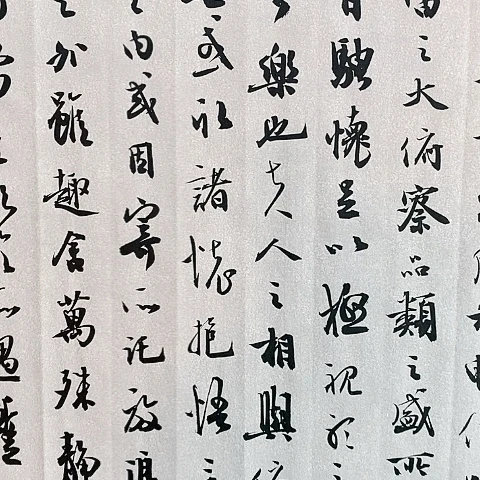 之大俯察品類之盛所
騁懷足以極視聽之
樂也夫人之相與俯
或取諸懷抱悟
之內或因寄所託放浪
之外雖趣舍萬殊靜
所遇